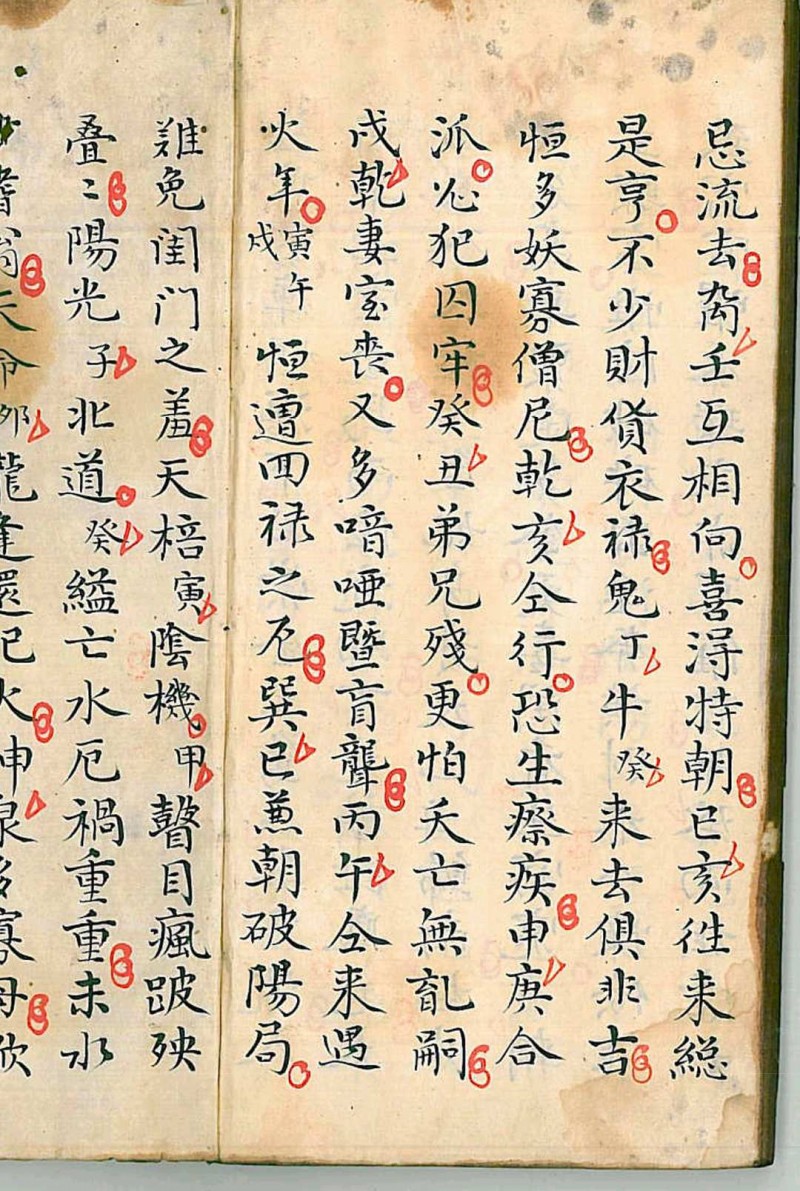 忌流去啇壬互相向喜淂特朝巳亥徃来総
是亨不少財貨衣禄鬼丁牛癸来去俱非吉
恒多妖寡僧尼乾亥仝行恐生瘵疾申庚合
派必犯囚牢癸丑弟兄殘更怕夭亡無亂嗣
戌乾妻室丧又多喑啞曁盲聾丙午仝来遇
火年寅午戌恒遭回禄之厄巽巳蒹朝破陽局
難免闺门之羞天棓寅陰機甲瞽目瘋跛殃
叠〻陽光子北道癸縊亡水厄禍重重未水
夭命卯龍逢還犯火神艮多寡母欣